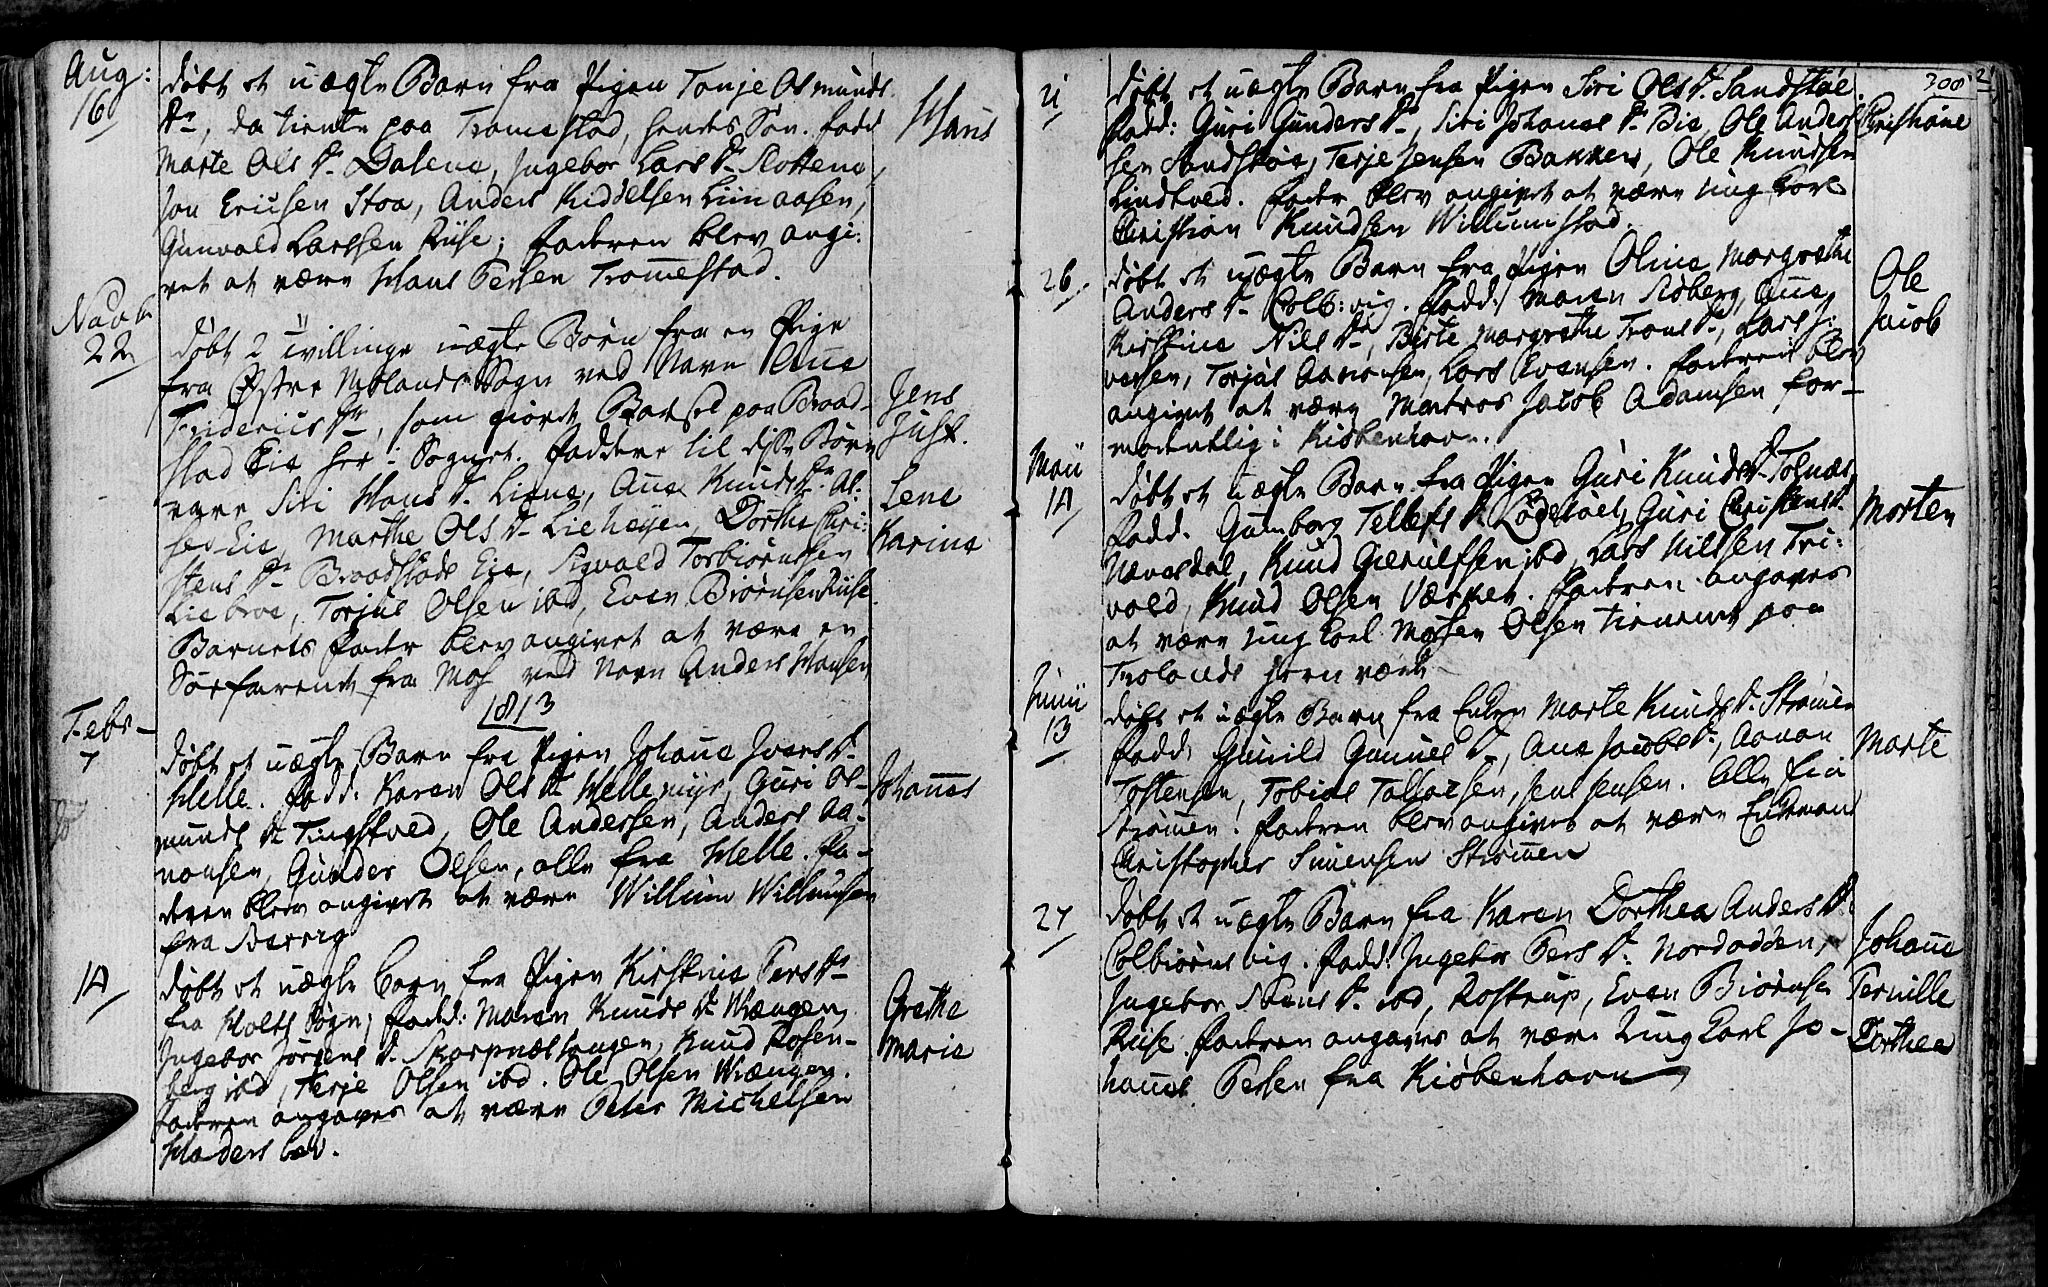 Aug:
16
døbt et uægte Barn fra Pigen Tonje Osmunds
Dr, da tiente paa Tromestad, hendes Søn. fadd
Marte Ols Dr Dalene, Ingebor Lars Dr Slottene,
Jon Ericsen Stoa, Anders Kiddelsen Liinaasen,
Gunvald Larssen Riise; faderen blev angi-
vet at være Hans Persen Tromestad.
Hans
Novb
22
døbt 2 tvillinge uægte Børn fra en Pige
fra Østre Molands Sogn ved Navn Anne
Friderics Dr, som giorde Barsel paa Braad-
stad Eie her i Sognet. faddere til disse Børn
vare Siri Hans Dr Liene, Ane Knuds Dr Al-
sed Eie, Marthe Ols Dr Lieheyen, Dorthe Chri-
stens Dr Braadstads Eie, Sigvald Torbiørnsen
Liebroe, Torjus Olsen ibd, Even Biørnsen Riise
Barnets fader blev angivet at være en
Søefarende fra Mos ved Navn Anders Hansen
Jens
Just.
Lene
Karine
1813
Febr-
7
døbt et uægte Barn fra Pigen Johane Ivers Dr
Helle. fadd: Karen Ols Dr Hellemyr, Guri Os-
munds Dr Tingstved, Ole Andersen, Anders Aa-
nonsen, Gunder Olsen, alle fra Helle. fa-
deren blev angivet at være Willum Willumsen
fra
Johannes
14
døbt et uægte Barn fra Pigen Kirstine Pers Dr
fra Holts Sogn; fadd: Maren Knuds Dr Wrængen,
Ingebor Jørgens Dr Skarpnæstangen, Knud Rosen-
berg ibd, Terje Olsen ibd. Ole Olsen Wrængen.
faderen angaves at være Peter Michelsen
Haderslev.
Grethe
Marie
308
21
døbt et uægte Barn fra Pigen Siri Ols Dr Sandstøe.
fadd: Guri Gunders Dr, Siri Johans Dr Bie, Ole Ander-
sen Sandstøe, Terje Jensen Bakken, Ole Knudsen
Lindtved. fader blev angivet at være ung Karl
Christian Knudsen Willumstad.
Christiane
26
døbt et uægte Barn fra Pigen Oline Margrethe
Anders Dr Colb:vig. fadd: Maren Siøberg, Anne
Kirstine Nils Dr, Birte Margrethe Trons Dr, Lars I-
versen, Torjus Aanonsen, Lars Evensen. faderen blev
angivet at være Matros Jacob Adamsen for-
modentlig i Kiøbenhavn.
Ole
Jacob
Maii
14
døbt et uægte Barn fra Pigen Guri Knuds Dr Tolnæs
fadd. Gunborg Tellefs Dr Lødestøel, Guri Christens Dr
Nævesdal, Knud Gierulfsen ibd, Lars Nilsen Tri-
vold, Knud Olsen Værket. faderen angaves
at være ung Karl Morten Olsen tienende paa
Frolands Jernværk
Morten
Junii
13
døbt et uægte Barn fra Enken Marte Knuds Dr Strømen
fadd: Gunild Gunuls Dr, Ane Jacobs Dr, Aanon
Tostensen, Tobias Tallaksen, Jens Jensen. Alle fra
Strømen. faderen blev angivet at være Enkemand
Christopher Simensen Strømmen
Marte
27
døbt et uægte Barn fra Karen Dorthea Anders Dr
Colbiørnsvig. fadd: Ingebor Pers Dr Nordodden,
Ingebor Stens Dr ibd, Rostrup, Even Biørnsen
Riise. faderen angaves at være Ung Karl Jo-
hannes Persen fra Kiøbenhavn
Johane
Pernille
Dorthea